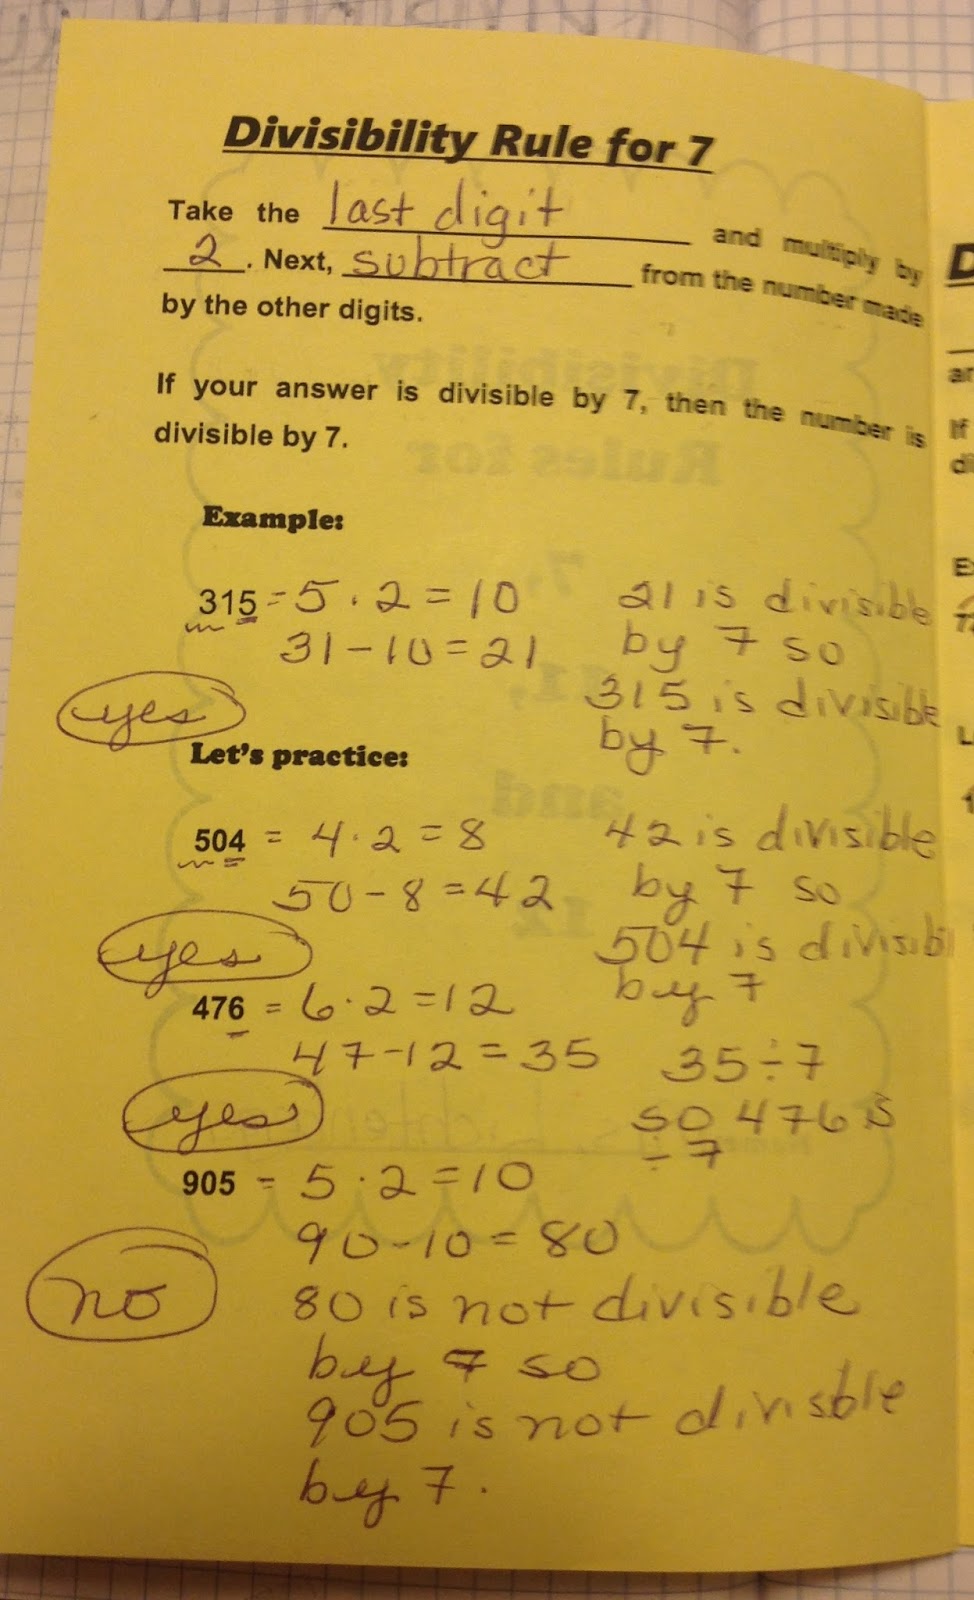 Divisibility Rule for 7
Take the last digit and multiply by
2. Next, subtract from the number made
by the other digits.
If your answer is divisible by 7, then the number is
divisible by 7.
Example:
315 = 5 · 2 = 10 21 is divisible
31 - 10 = 21 by 7 so
315 is divisible
yes
by 7.
Let's practice:
504 = 4 · 2 = 8 42 is divisible
50 - 8 = 42 by 7 so
yes 504 is divisibl
by 7
476 = 6 · 2 = 12
47 - 12 = 35 35 ÷ 7
yes so 476 is
÷ 7
905 = 5 · 2 = 10
90 - 10 = 80
no 80 is not divisible
by 7 so
905 is not divisble
by 7.